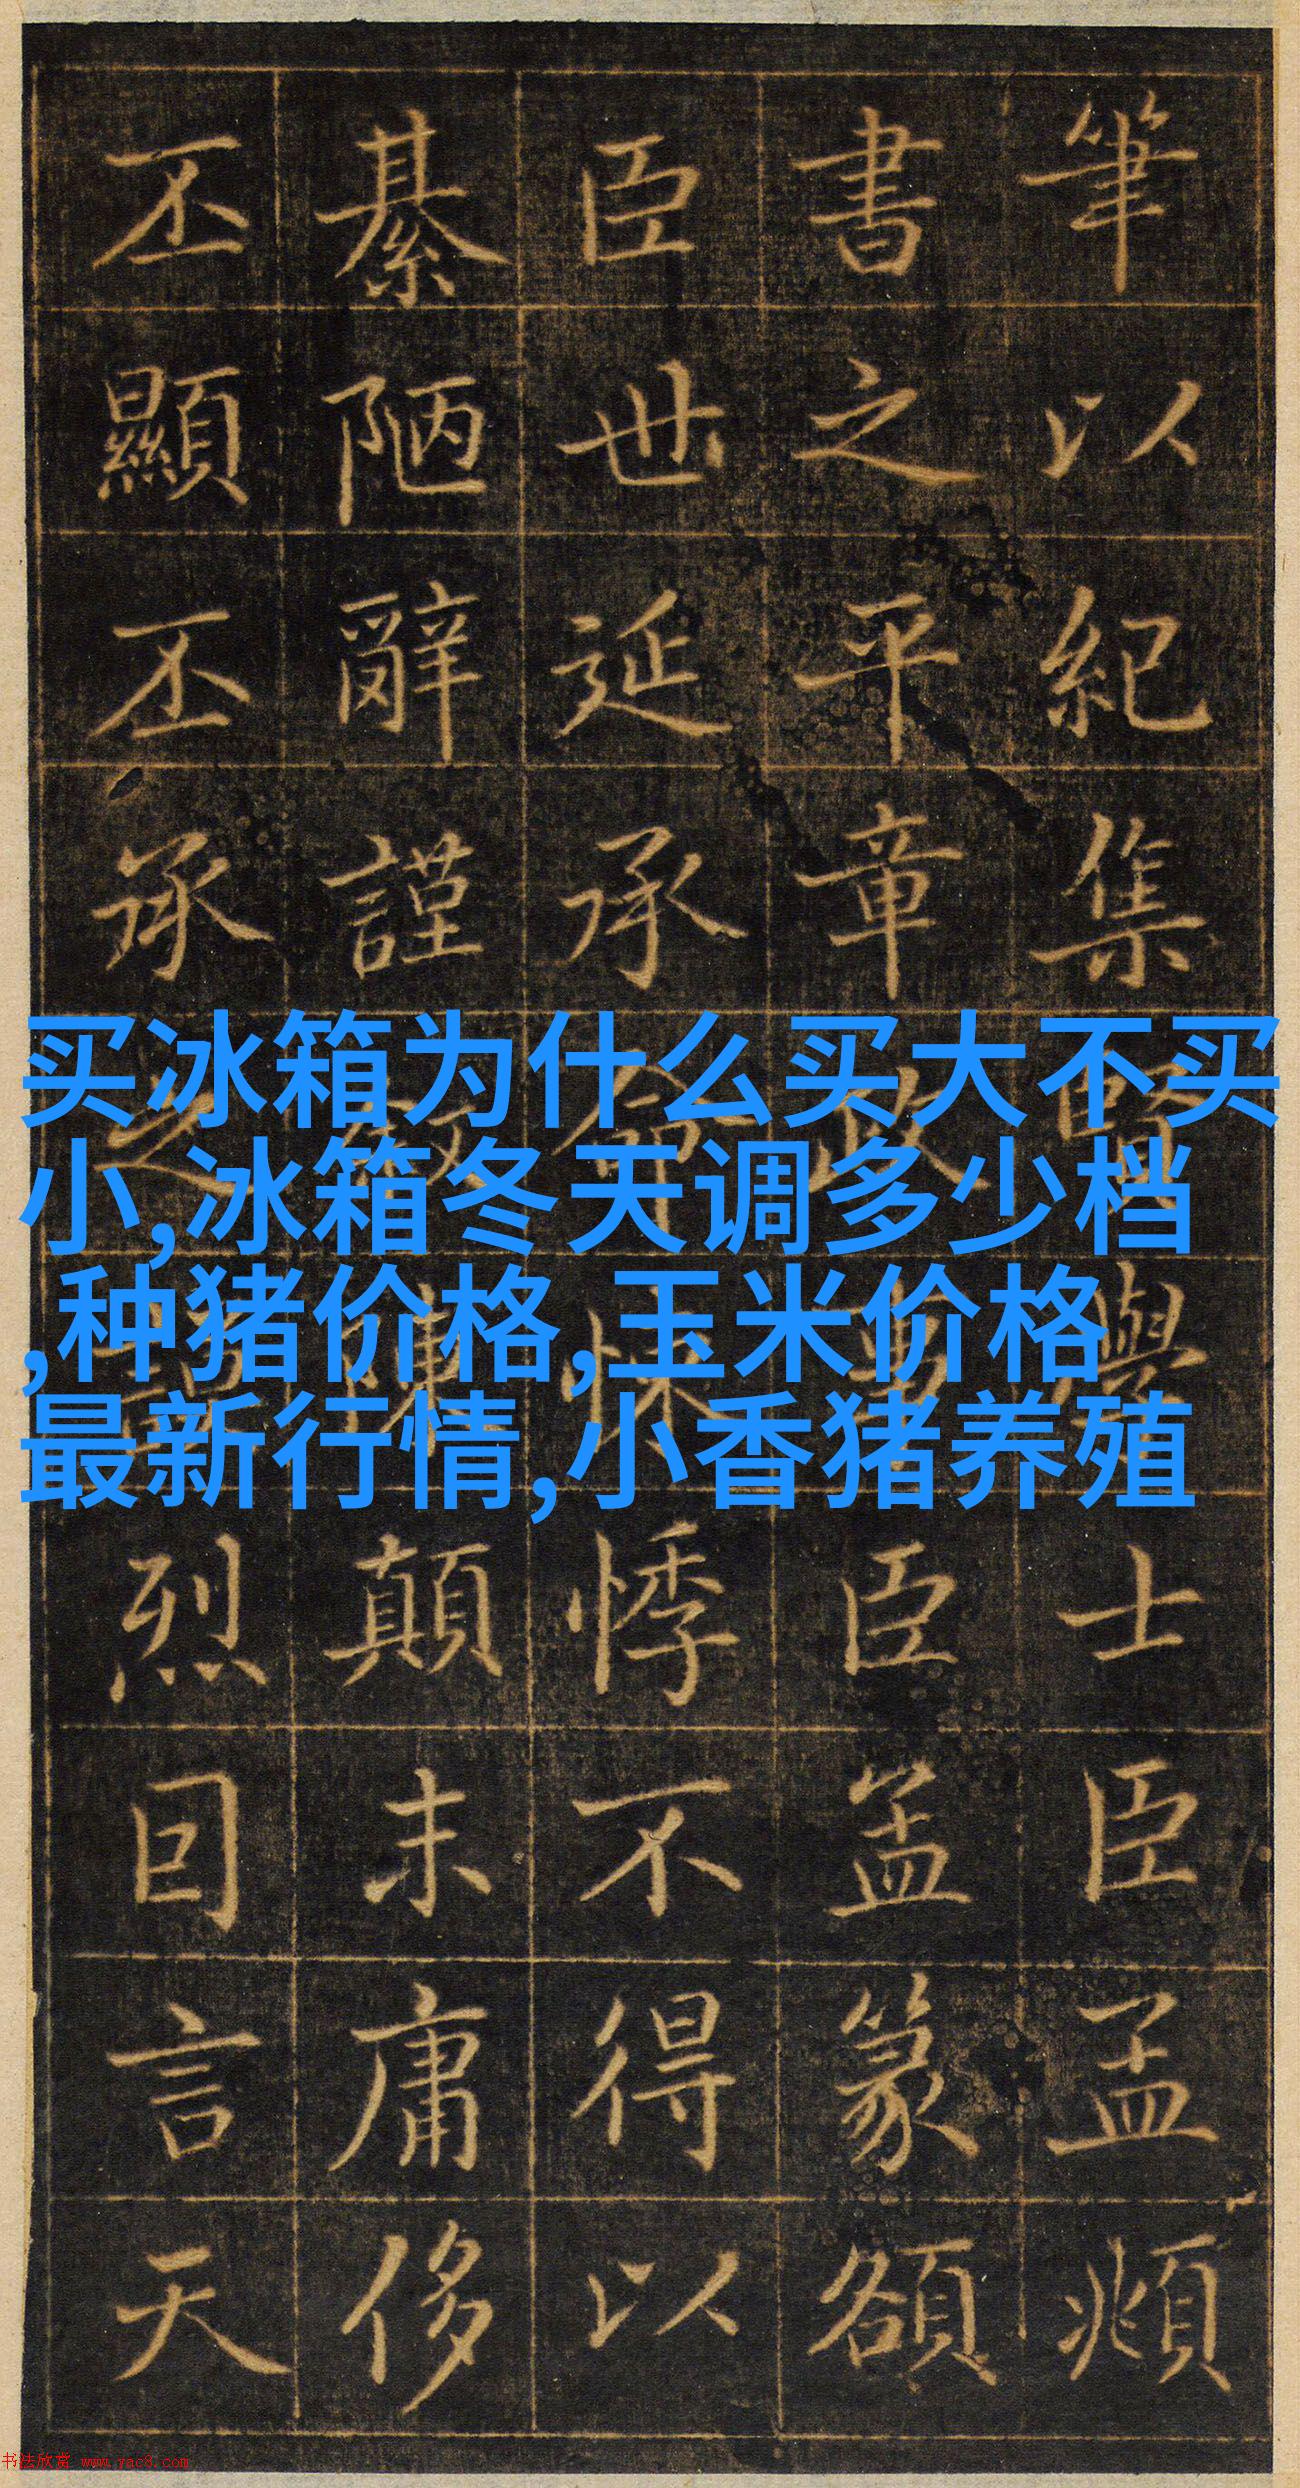 筆以紀集賢學士臣孟頫
書之平章政事臣篆額
臣世延承命悚悸不得以
綦陋辭謹陳顛末庸侈
丕顯丕承之謨烈囙言天
买冰箱为什么买大不买
小,冰箱冬天调多少档
,种猪价格,玉米价格
最新行情,小香猪养殖
书法欣赏 www.yac8.com